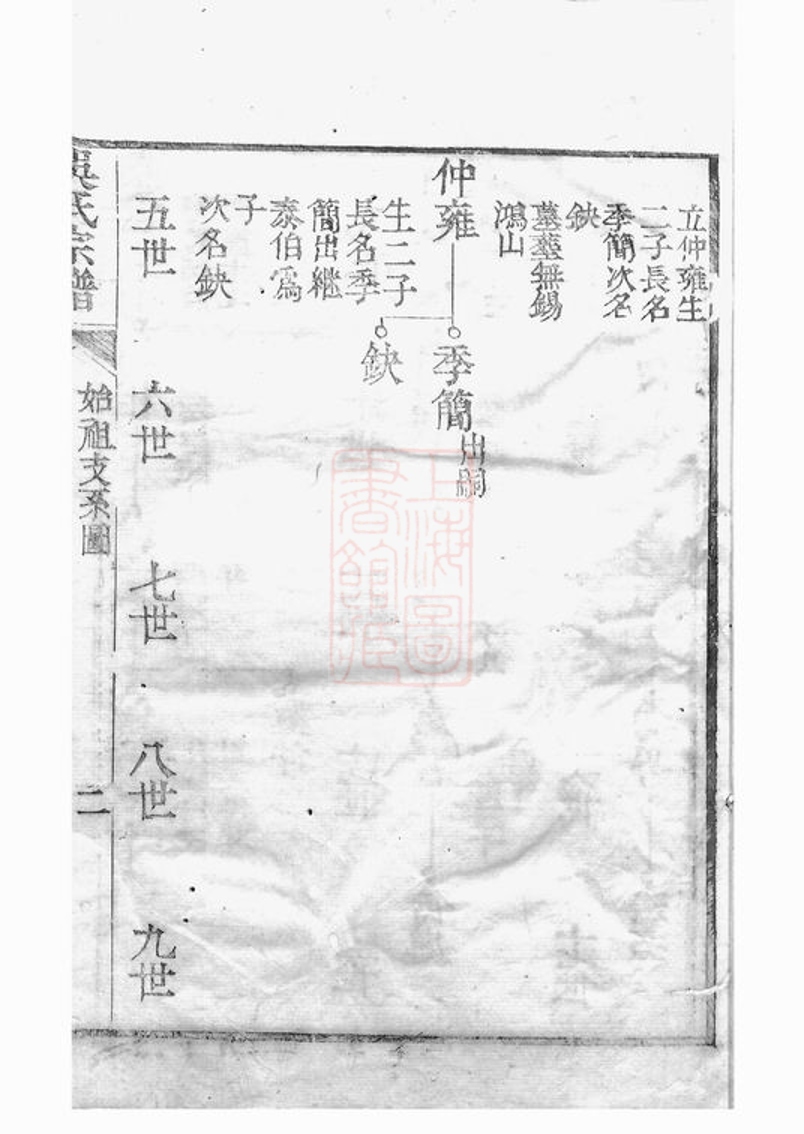 立仲雍生
二子長名
季簡次名
缺
墓塟無錫
鴻山
仲雍
季簡出嗣
缺
生二子
長名季
簡出継
泰伯爲
子
次名缺
五世
六世
七世
八世
九世
吳氏宗譜
始祖支系圖
二
上海圖書館藏